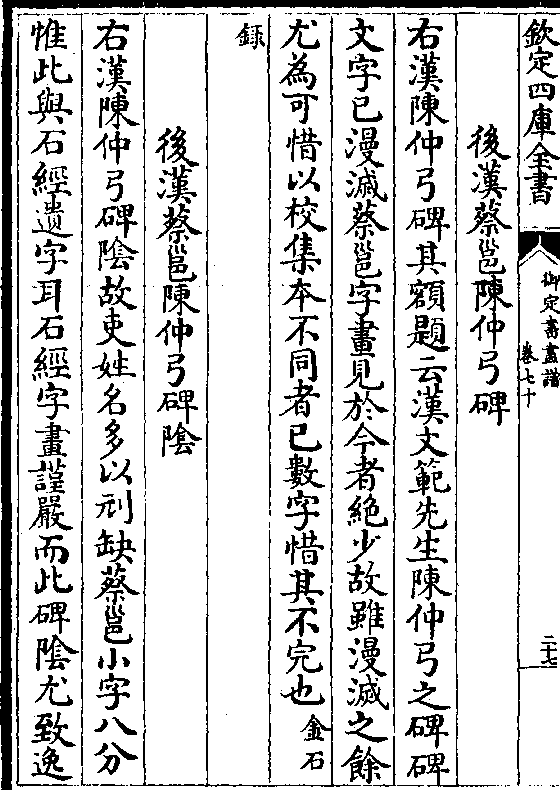 欽定四庫全書
御定書畫譜
卷七十
二十七
後漢蔡邕陳仲弓碑
右漢陳仲弓碑其額題云漢文範先生陳仲弓之碑碑
文字已漫滅蔡邕字畫見於今者絶少故雖漫滅之餘
尤為可惜以校集本不同者已數字惜其不完也金石
録
後漢蔡邕陳仲弓碑陰
右漢陳仲弓碑陰故吏姓名多以刓缺蔡邕小字八分
惟此與石經遺字耳石經字畫謹嚴而此碑陰尤致逸